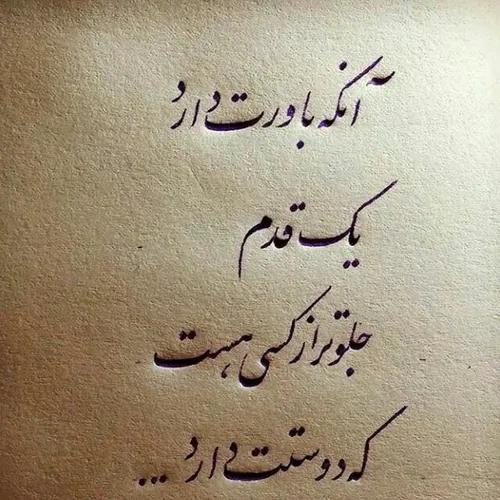 آنکه باورت دارد
یک قدم
جلوتر از کسی هست
که دوستت دارد ...